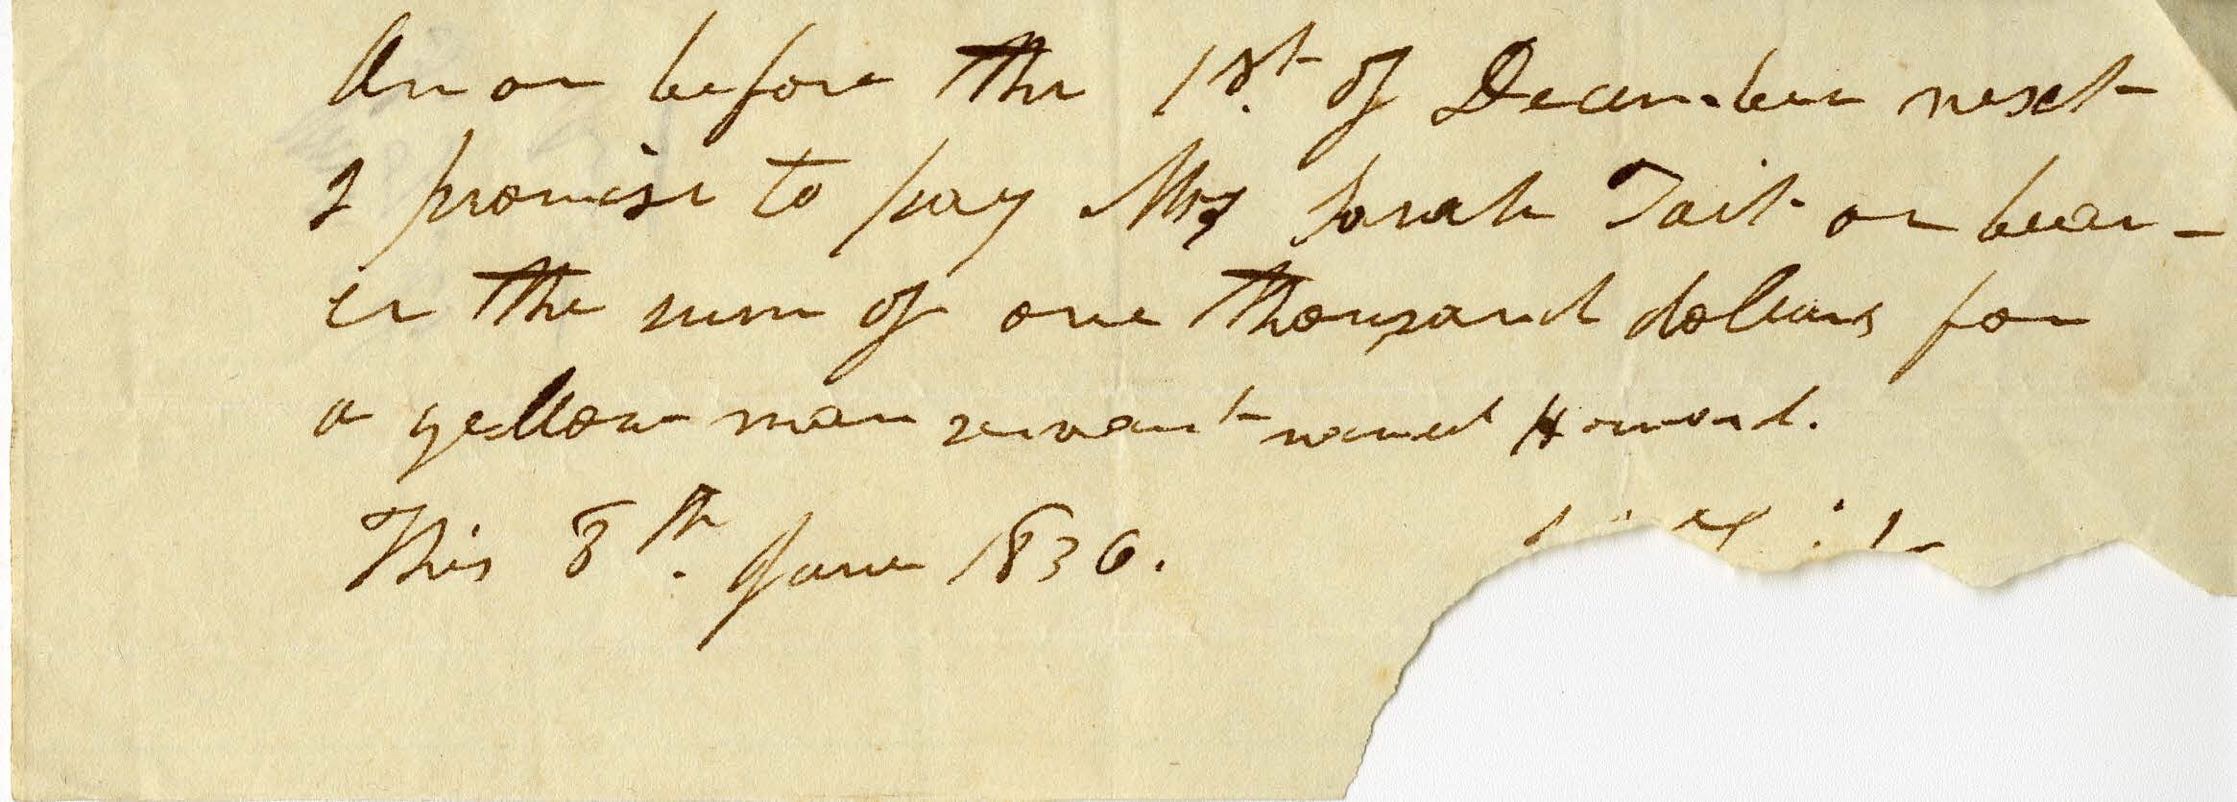 On or before the 1st. of December next
I promise to pay Mrs Sarah Tait or bear-
er the sum of one thousand dollars for
a yellow man servant named
This 8th. June 1836.